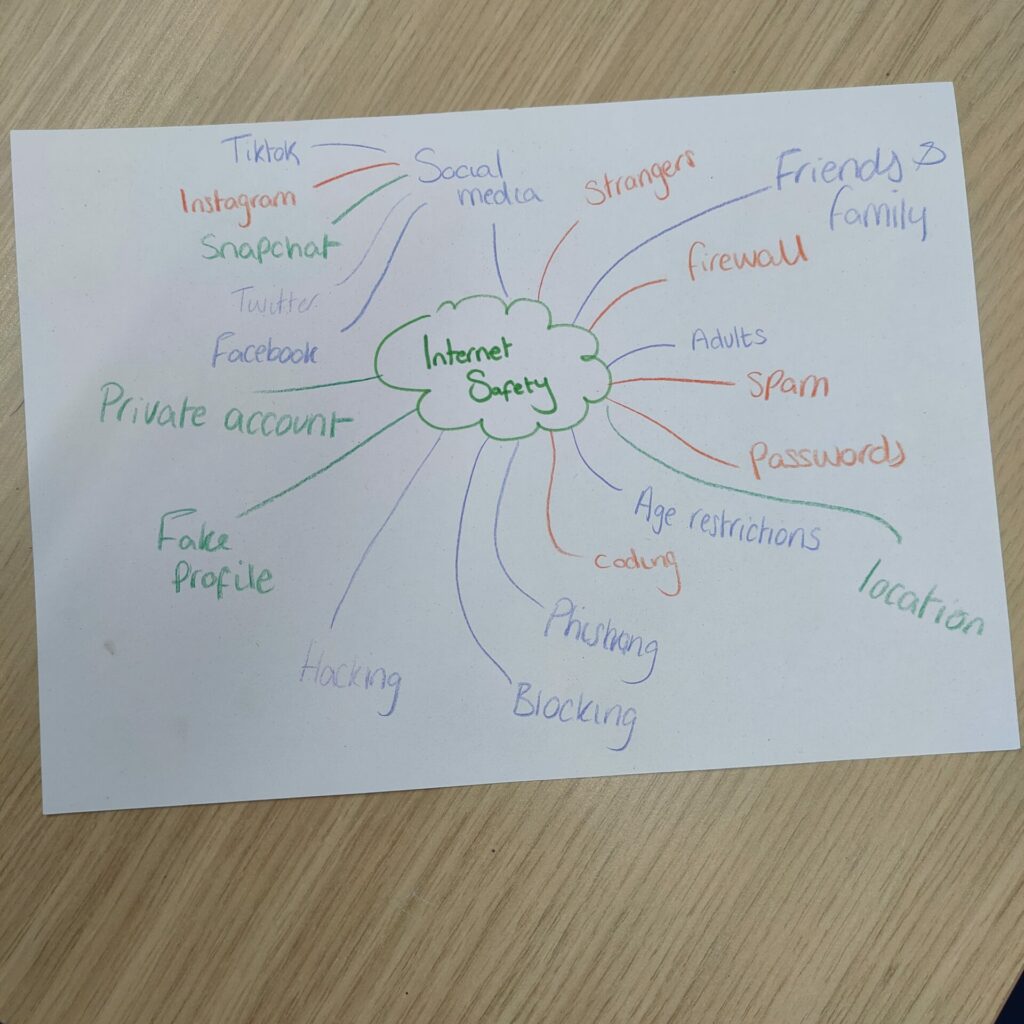 Tiktok
Social
media
Instagram
Snapchat
Twitter
Facebook
Strangers
Friends &
family
firewall
Adults
Spam
Passwords
Internet
Safety
Private account
Fake
Profile
Age restrictions
coding
location
Phishing
Hacking
Blocking